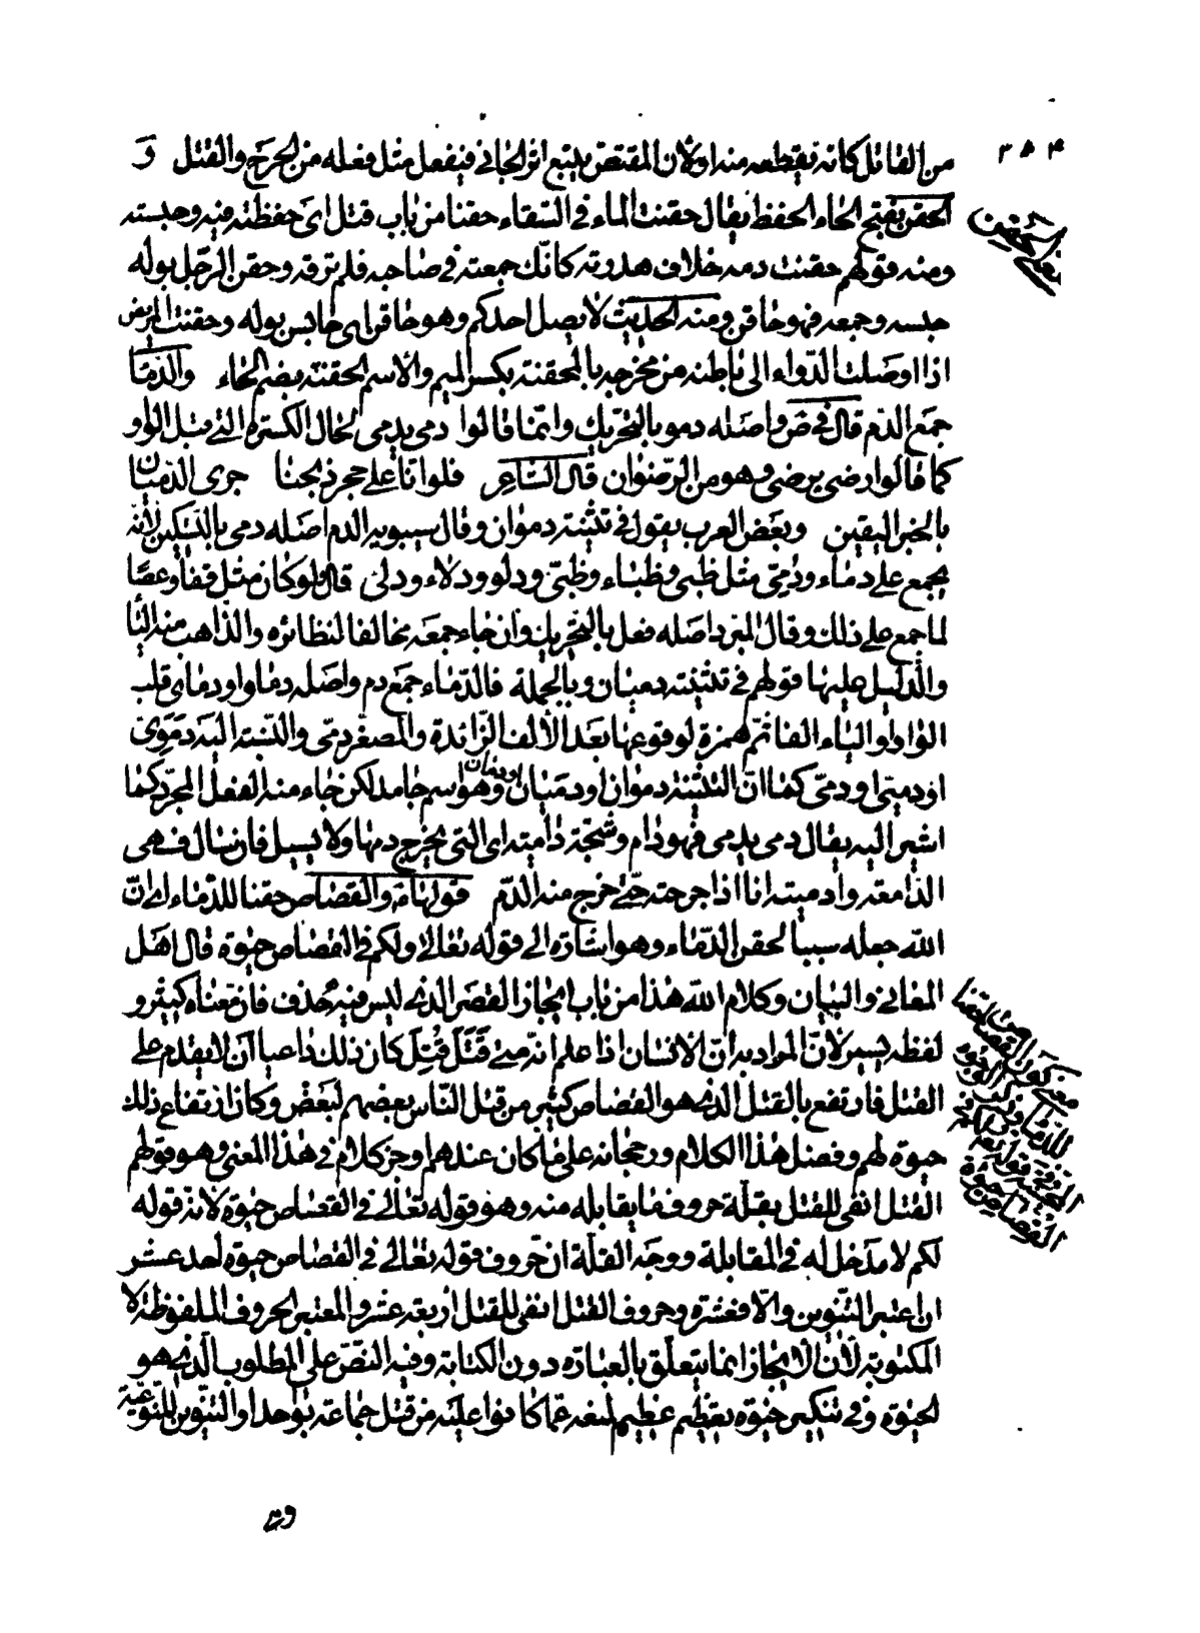 ٣٥٤
من القاتل كانه يقطعه منه اولان المقتص يتبع اثر الجاني فيفعل مثل فعله من الجرح والقتل و
الحقن بفتح الحاء الحفظ يقال حقنت الماء في السقاء حقنا من باب قتل اى حفظته فيه وحبسته
ومنه قولهم حقنت دمه خلاف هدرته كانك جمعته في صاحبه فلم ترقه وحقن الرجل بوله
حبسه وجمعه فهو حاقن ومنه الحديث لا يصل احدكم وهو حاقن اى حابس بوله وحقنت المريض
اذا اوصلت الدواء الى باطنه من مخرجه بالمحقنة بكسر الميم والاسم الحقنة بضم الحاء والدماء
جمع الدم قال في ض واصله دمو بالتحريك وانما قالوا دمى يدمى لحال الكسرة التي قبل الواو
كما قالوا رضى يرضى وهو من الرضوان قال الشاعر فلو انا على حجر ذبحنا جرى الدميان
بالخبر اليقين وبعض العرب يقول في تثنيته دموان وقال سيبويه الدم اصله دمى بالتسكين لانه
يجمع على دماء ودمى مثل ظبى وظباء وظبى ودلو ودلاء ودلى قال ولو كان مثل قفا وعصا
لما جمع على ذلك وقال المبرد اصله فعل بالتحريك وان جاء جمعه مخالفا لنظائره والذاهب منه الياء
والدليل عليها قولهم في تثنيته دميان وبالجملة فالدماء جمع دم واصله دماو او دماى قلب
الواو او الياء الفا ثم همزة لوقوعها بعد الالف الزائدة والمصغر دمى والنسبة اليه دموى
او دميى او دمى كما ان التثنية دموان او دميان او دمان وهو اسم جامد لكن جاء منه الفعل المجرد كما
اشير اليه يقال دمى يدمى فهو دام وشجة دامية اى التي يخرج دمها ولا يسيل فان سال فهى
الدامعة وادميته انا اذا جرحته حتى خرج منه الدم قولها ة والقصاص حقنا للدماء اى ان
الله جعله سببا لحقن الدماء وهو اشارة الى قوله تعالى ولكم في القصاص حيوة قال اهل
المعاني والبيان وكلام الله هذا من باب ايجاز القصر الذي ليس فيه حذف فان معناه كثير و
لفظه يسير لان المراد به ان الانسان اذا علم انه متى قَتَلَ قُتِلَ كان ذلك داعيا ان لا يقدم على
القتل فارتفع بالقتل الذي هو القصاص كثير من قتل الناس بعضهم لبعض وكان ارتفاع ذلك
حيوة لهم وفضل هذا الكلام ورجحانه على ما كان عندهم اوجز كلام في هذا المعنى وهو قولهم
القتل انفى للقتل بقلة حروف ما يقابله منه وهو قوله تعالى في القصاص حيوة لان قوله
لكم لا مدخل له في المقابلة ووجه القلة ان حروف قوله تعالى في القصاص حيوة احد عشر
ان اعتبر التنوين والا فعشرة وحروف القتل انفى للقتل اربعة عشر والمعتبر الحروف الملفوظة لا
المكتوبة لان الايجاز انما يتعلق بالعبارة دون الكتابة وفيه النص على المطلوب الذي هو
الحيوة وفي تنكير حيوة تعظيم عظيم لمنعه عما كانوا عليه من قتل جماعة بواحد او التنوين للنوعية
معنى الحقن
معنى كون القصاص حقنا
للدماء
قوله تعالى
القصاص حيوة